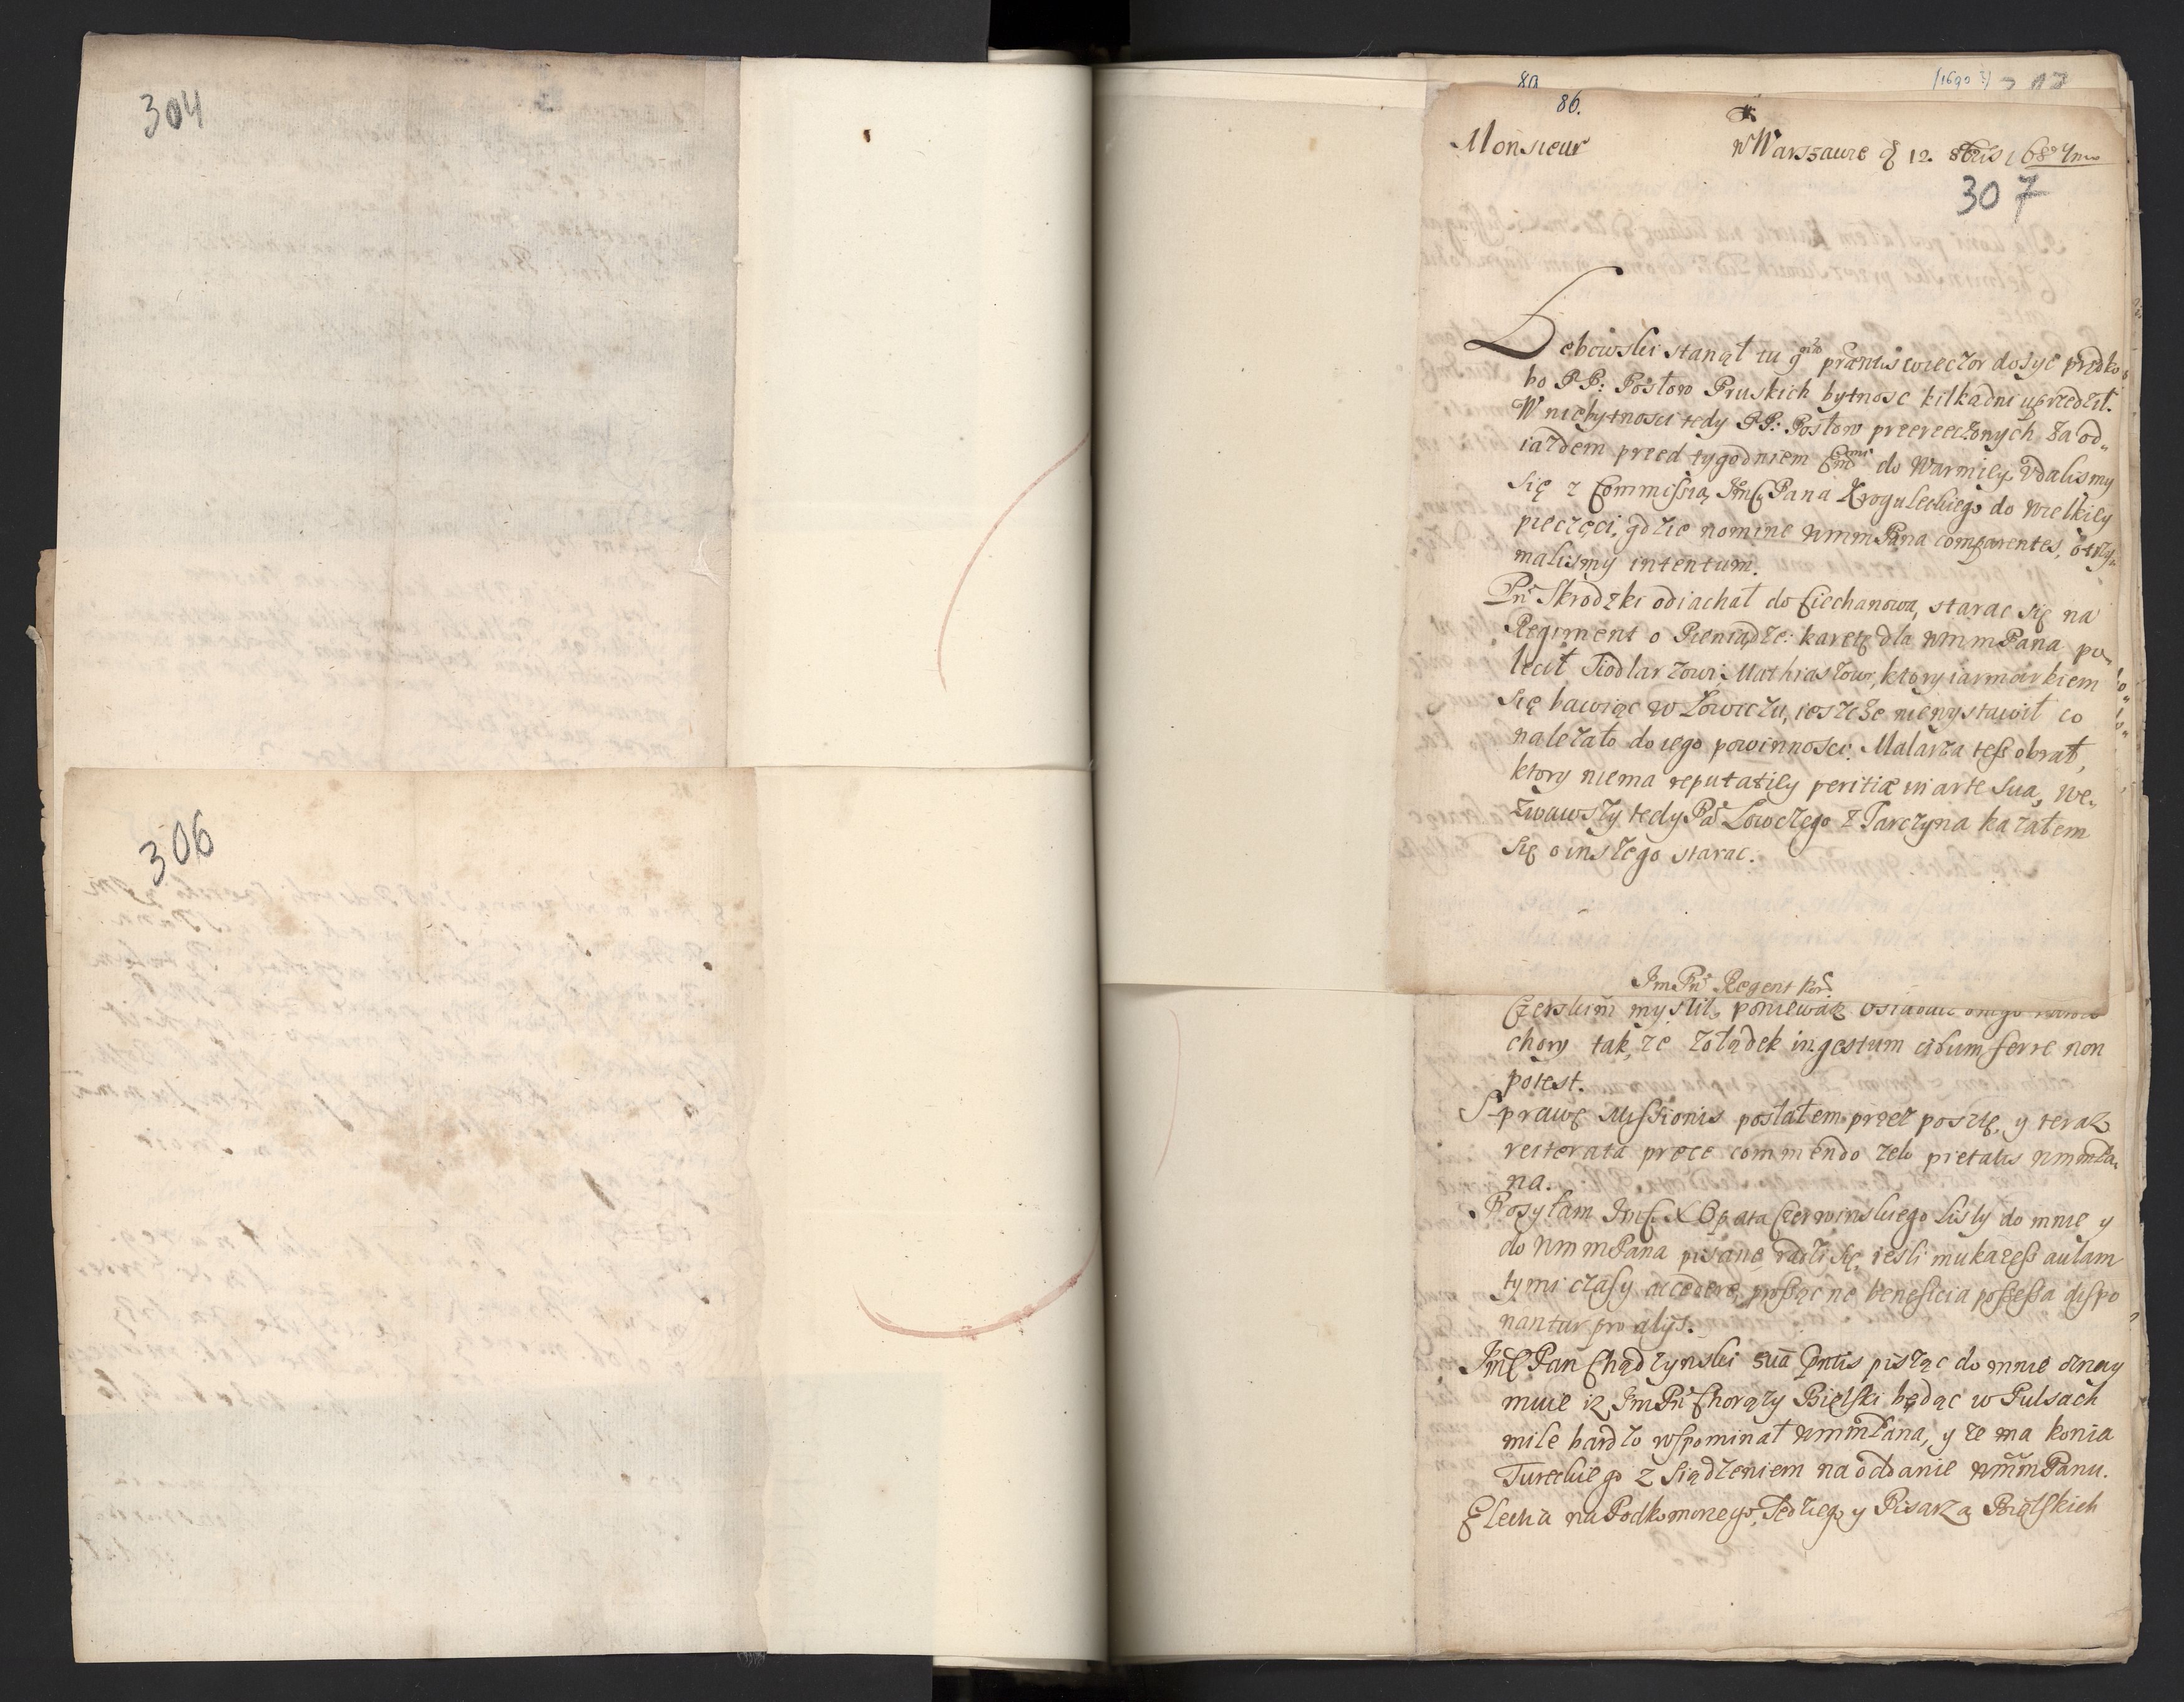 304
306
89
(1690 ?)
86.
Monsieur w Warszawie d 12. 8bris 1687mo
307
Dębowski stanął tu 9no præntis wieczor dosyc prędko
bo PP: Posłow Pruskich bytnosc kilkadni uprzedził.
W niebytnosci tedy PP: Posłow przerzeczonych za od„
iazdem przed tygodniem Emmi do Warmiiey, udalismy
się z Commissią JmC Pana Kroguleckiego do wielkiey
pieczęci, gdzie nomine WmmPana comparentes, otrzy„
malismy intentum.
Pn Skrodzki odiachał do Ciechanowa, starac się na
Regiment o Pieniądze: karetę dla WmmPana po„
lecił Siodlarzowi Mathiaszowi, ktory iarmarkiem
się bawiąc w Łowiczu, ieszcze niewystawił co
należało do iego powinnosci. Malarza tesz obrał,
ktory niema reputatiey peritiæ in arte sua, we„
zwawszy tedy Pa Łowczego z Tarczyna kazałem
się o inszego starac.
JmPn Regent Kor
Czerskim myslił, poniewaz
chory tak, ze zołądek ingestum cibum ferre non
potest.
Sprawę Missionis posłałem przez posztę, y teraz
reiterata prece commendo zelo pietatis WmmPa„
na.
Posyłam JmC X Opata Czerwinskiego Listy do mnie y
do WmmPana pisane, radzi się, iesli mu każesz aulam
tymi czasy accedere, prosząc ne beneficia possessa dispo
nantur pro alijs.
JmC Pan Chądzynski sua prntis pisząc do mnie oznay
muie iz JmPn Chorąży Bielski będąc w Pulsach
mile bardzo wspominał WmmPana, y ze ma konia
Tureckiego z siądzeniem na oddanie WmmPanu.
Electia na Podkomorzego, Sędziego y Pisarza Bielskich